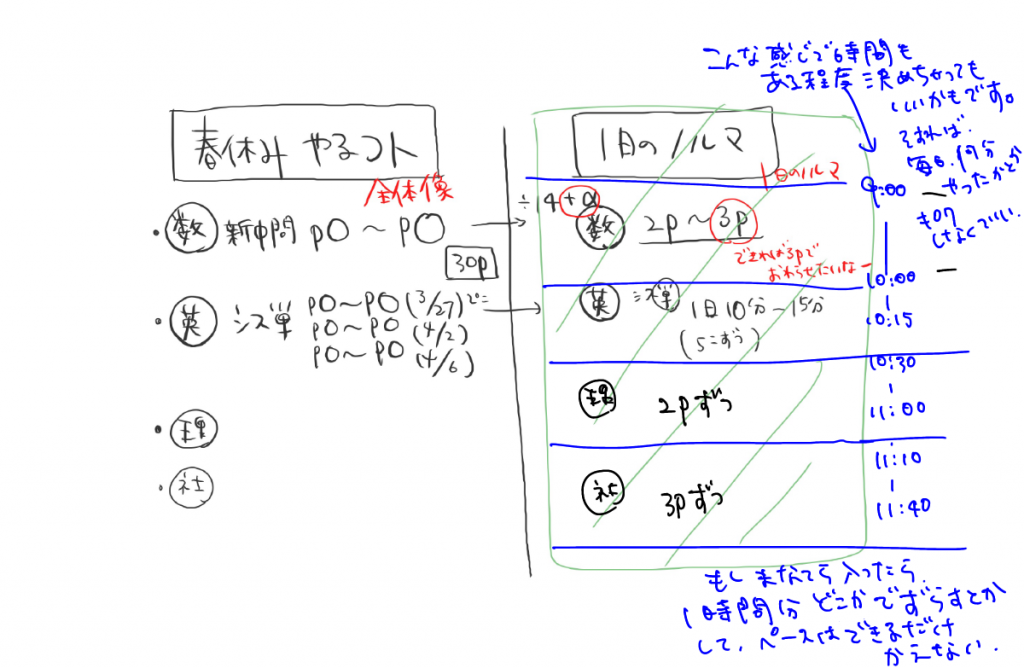 こんな感じで時間も
ある程度決めちゃっても
いいかもです。
それば
毎日何分
やったかとか
しなくていい。
春休み やるコト
全体像
・数 新中問 pO ～ pO
30p
・英 シス単 pO～pO (3/27)まで
pO～pO (4/2)
pO～pO (4/6)
・理
・社
1日のノルマ
1日のノルマ
÷14+α
数 2p～3p
できれば3pで
おわらせたいな
9:00
10:00
英 シス単 1日10分～15分
(5こずつ)
10:15
理 2pずつ
10:30
11:00
社 3pずつ
11:10
11:40
もし 入ったら、
1時間分 どこかでずらすとか
して、ペースはできるだけ
かえない.